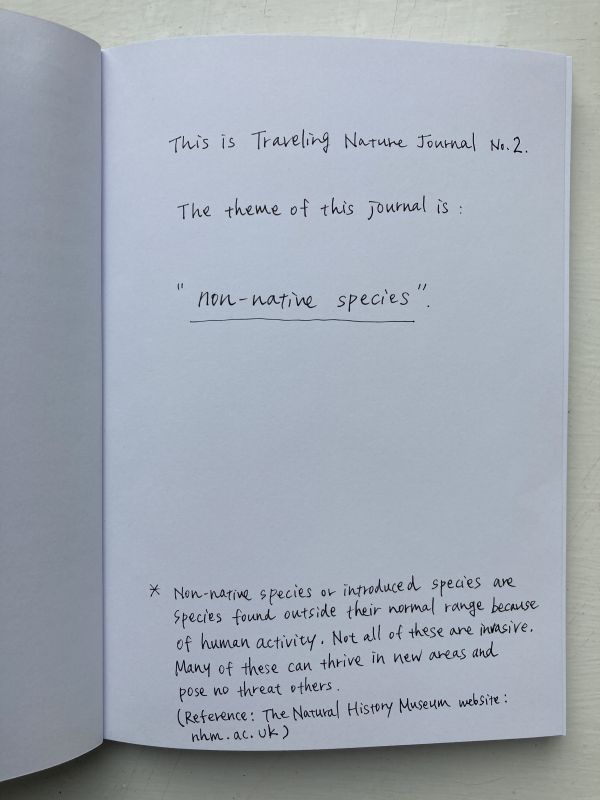 This is Traveling Nature Journal No.2.
The theme of this journal is :
"non-native species".
* Non-native species or introduced species are
species found outside their normal range because
of human activity. Not all of these are invasive.
Many of these can thrive in new areas and
pose no threat others.
(Reference: The Natural History Museum website:
nhm.ac.uk)